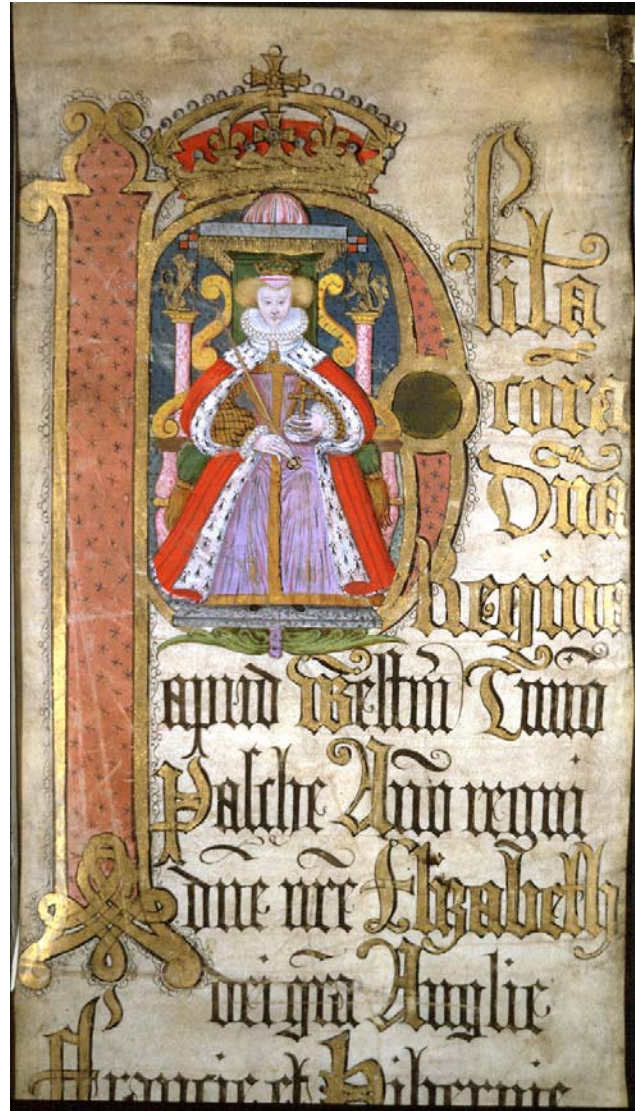 Plita
corã
Dñã
Regina
apud Westm̃ Tmiõ
Pasche Anõ regni
dñe nr̃e Elizabeth
dei gr̃a Anglie
Francie et Hibernie